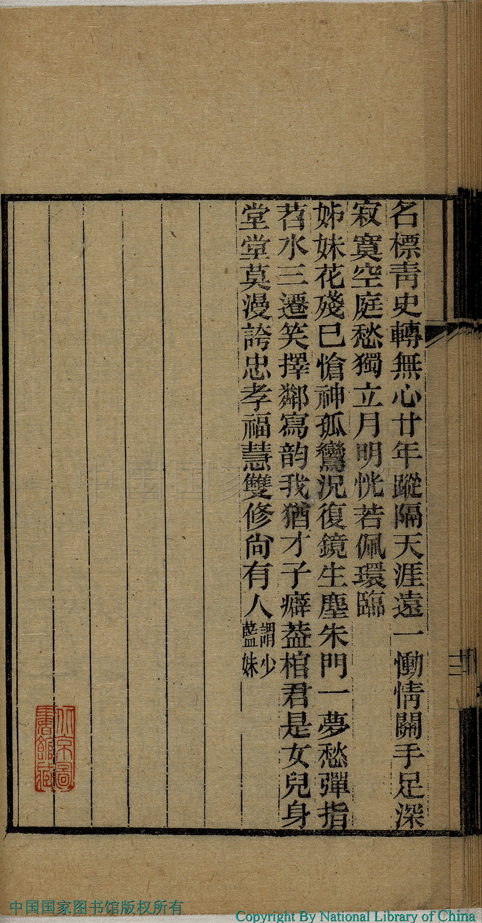 名標靑史轉無心廿年蹤隔天涯遠一慟情關手足深
寂寞空庭愁獨立月明恍若佩環臨
姊妹花殘已愴神孤鸞況復鏡生塵朱門一夢愁彈指
苕水三遷笑擇鄰寫韵我猶才子癖葢棺君是女兒身
堂堂莫漫誇忠孝福慧雙修尙有人謂少藍妹
中国国家图书馆版权所有
Copyright By National Library of China